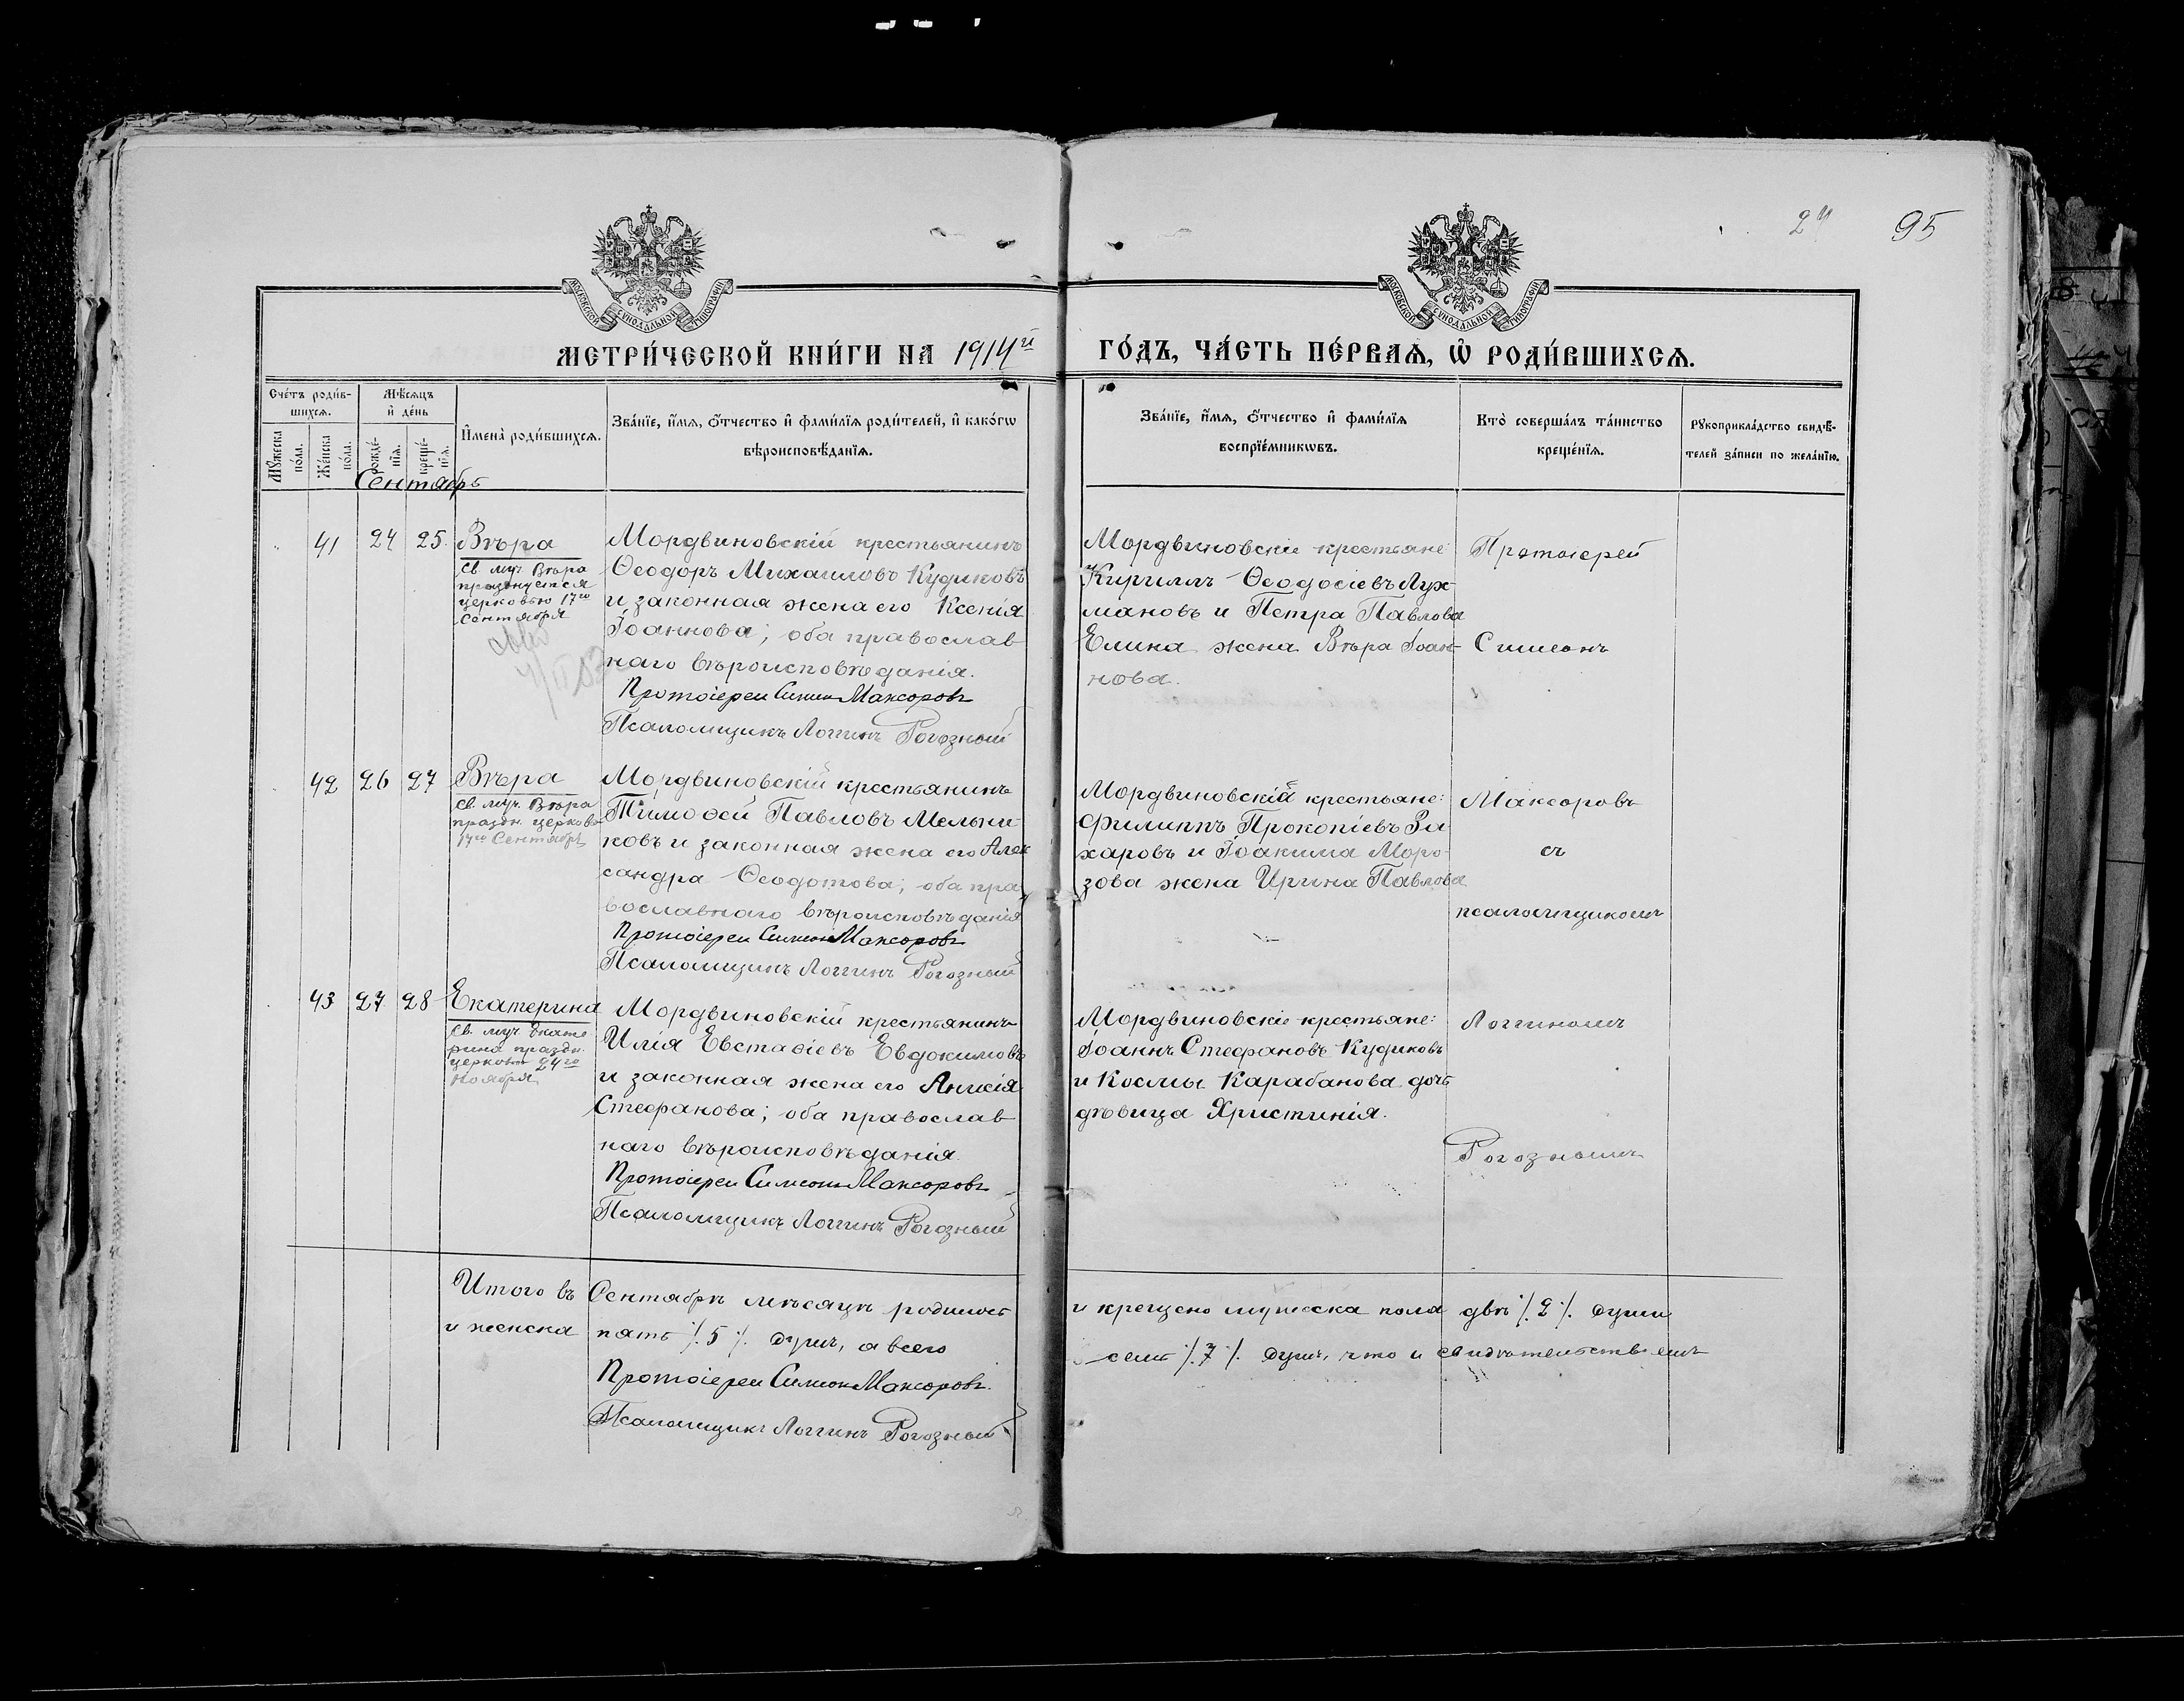 24 95
МОСКОВСКОЙ СУНОДАЛЬНОЙ ТИПОГРАФІИ
МОСКОВСКОЙ СУНОДАЛЬНОЙ ТИПОГРАФІИ
МЕТРИ́ЧЕСКОЙ КНИ́ГИ НА 1914й ГО́ДЪ, ЧА́СТЬ ПЕ́РВАѦ, Ѡ҆ РОДИ́ВШИХСѦ.
Сче́тъ роди́в-
шихсѧ.
Мꙋ́жеска
по́ла.
Же́нска
по́ла.
Мѣ́сѧцъ
и҆ де́нь
рожде́-
нїѧ.
креще́-
нїѧ.
И҆мена̀ роди́вшихсѧ.
Зва́нїе, и҆́мѧ, ѻ҆́тчество и҆ фамилїѧ роди́телей, и҆ како́гѡ
вѣроисповѣ́данїѧ.
Зва́нїе, и҆́мѧ, ѻ҆́тчество и҆ фами́лїѧ
воспрїе́мникѡвъ.
Кто̀ соверша́лъ та́инство
креще́нїѧ.
Рꙋкоприкла́дство свидѣ́-
телей за́писи по жела́нїю.
Сентябрь
41 24 25 Вѣра
Св. муч. Вѣра
празднуется
церковью 17го
Сентября
Мордвиновскій крестьянинъ
Ѳеодоръ Михаиловъ Кудиновъ
и законная жена его Ксенія
Іоаннова; оба православ
наго вѣроисповѣданія.
Протоіерей Симеонъ Максоровъ
Псаломщикъ Логгинъ Рогозный
Мордвиновскіе крестьяне
Кириллъ Ѳеодосіевъ Лух-
мановъ и Петра Павлова
Елина жена Вѣра Іоан-
нова.
Протоіерей
Симеонъ
42 26 27 Вѣра
Св. муч. Вѣра
праздн. церковью
17го Сентября
Мордвиновскій крестьянинъ
Тимоѳей Павловъ Мельни-
ковъ и законная жена его Алек
сандра Ѳеодотова; оба пра
вославнаго вѣроисповѣданія
Протоіерей Симеонъ Максоровъ
Псаломщикъ Логгинъ Рогозный
Мордвиновскій крестьяне:
Филиппъ Прокопіевъ За
харовъ и Іоакима Моро-
зова жена Ирина Павлова
Максоровъ
съ
псаломщикомъ
43 27 28 Екатерина
Св. муч. Екате
рина праздн.
церковью 24го
Ноября
Мордвиновскій крестьянинъ
Илія Евстаѳіевъ Евдокимовъ
и законная жена его Анисія
Стефанова; оба православ
наго вѣроисповѣданія.
Протоіерей Симеонъ Максоровъ
Псаломщикъ Логгинъ Рогозный
Мордвиновскіе крестьяне:
Іоаннъ Стефановъ Кудиновъ
и Космы Карабанова дочь
дѣвица Христинія.
Логгиномъ
Рогознымъ
Итого въ Сентябрѣ мѣсяцѣ родилось и крещено мужеска пола двѣ ./. 2 ./. души
и женска пять ./. 5 ./. душъ, а всего семь ./. 7 ./. душъ, что и свидѣтельствуемъ
Протоіерей Симеонъ Максоровъ.
Псаломщикъ Логгинъ Рогозный